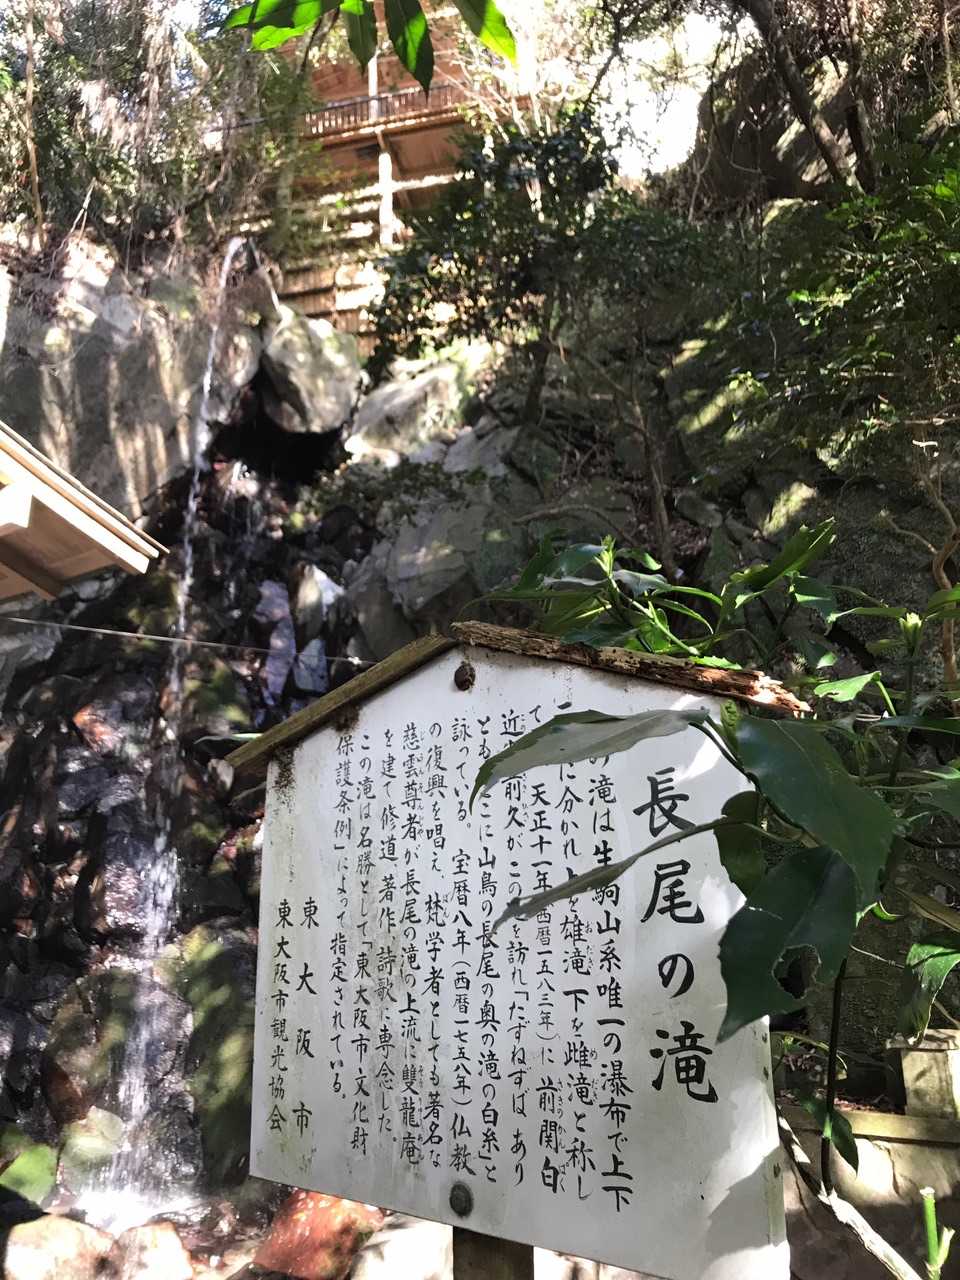 長尾の滝
の滝は生駒山系唯一の瀑布で上下
に分かれ上を雄滝下を雌滝と称し
て 天正十一年(西暦一五八三年)に 前関白
近 前久がこの を訪れ「たずねずば あり
とも こに山鳥の長尾の奥の滝の白糸」と
詠っている。宝暦八年(西暦一七五八年)仏教
の復興を唱え、梵学者としても著名な
慈雲尊者が長尾の滝の上流に雙龍庵
を建て修道、著作、詩歌に専念した。
この滝は名勝として「東大阪市文化財
保護条例」によって指定されている。
東大阪市
東大阪市観光協会